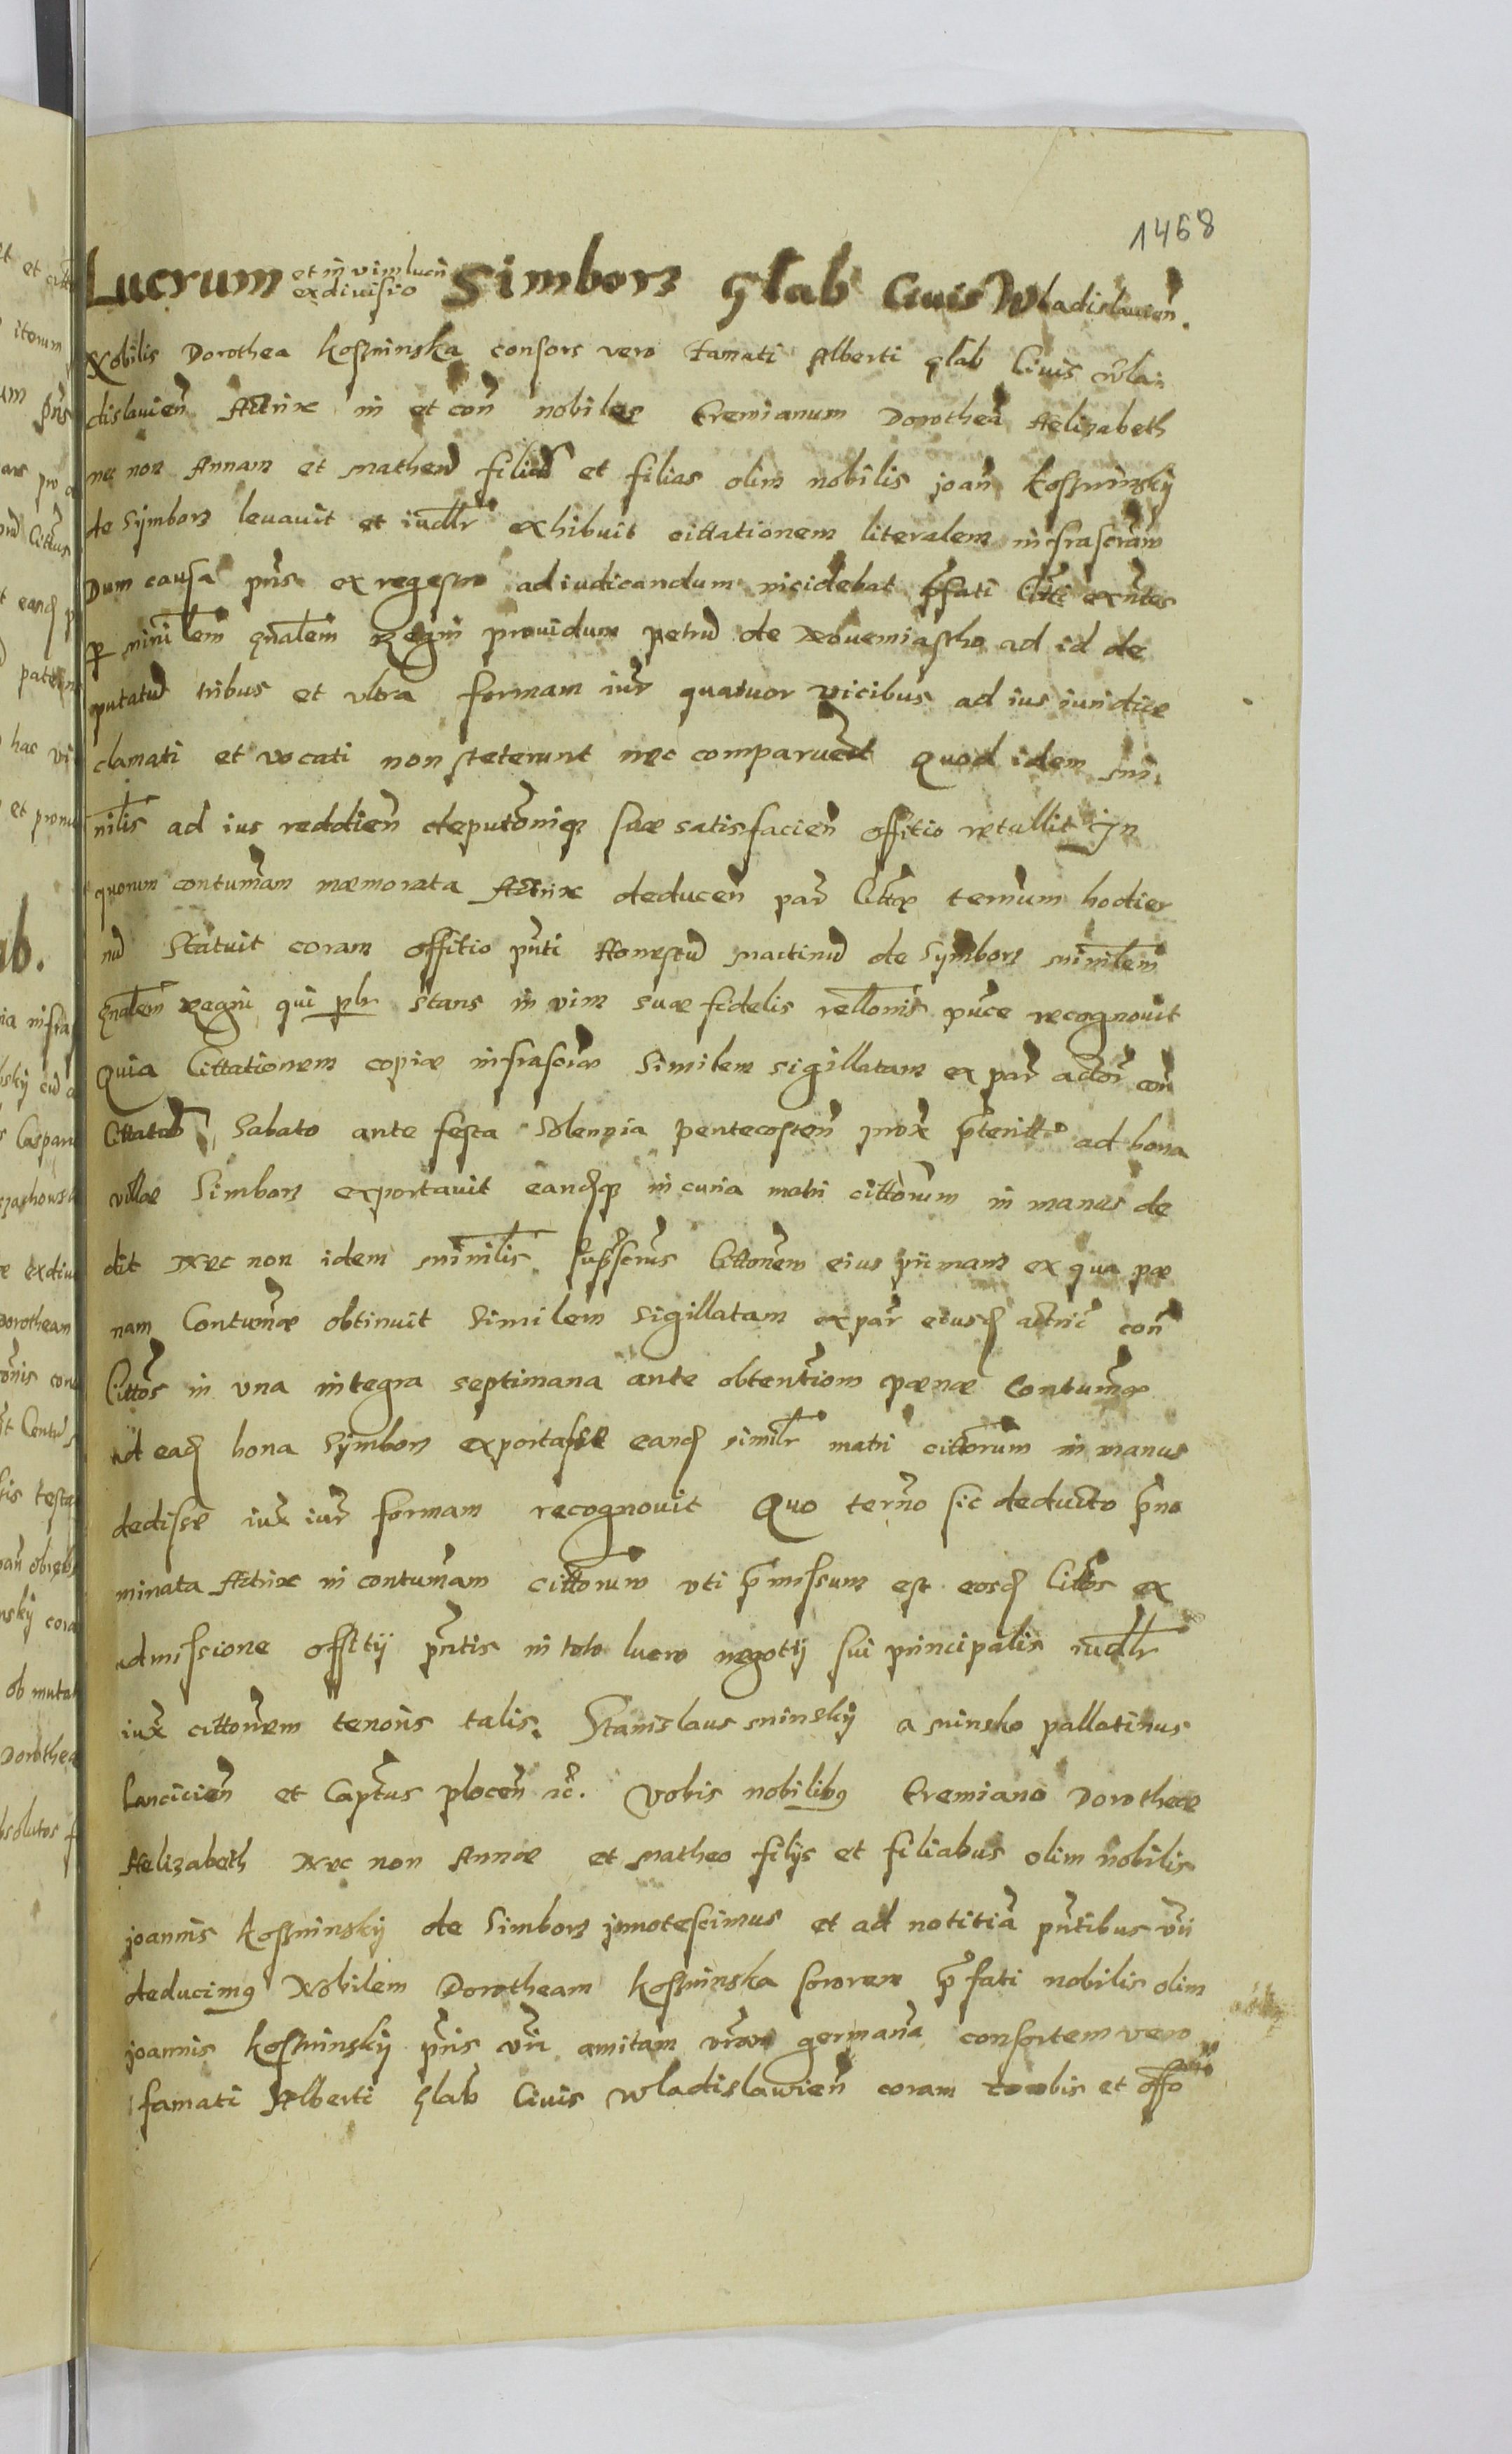 1468
Lucrum et in vim lucri ex divisio Simborz Glab Civis Wladislavien̄.
Nobilis Dorothea Kossninska consors vero famati Alberti Glab Civis Wla:
dislavien̄ Actrix in et con̄ nobiles Eremianum Dorotheā Helizabeth
nec non Annam et Matheū filiū et filias olim nobilis Joan̄ Kossninskÿ
de Sÿmborz levavit et iudlr̄ exhibuit cittationem literalem infrascrām
Dum causa pn̄s ex regestro ad iudicandum incidebat p̄fati Citti exn̄tes
per minilem gnalem Regni providum Petrū de Nove miastho ad id de
putatū tribus et ultra formam iur̄ quatuor vicibus ad ius iuridice
clamati et vocati non steterunt nec comparuert̄ Quod idem mi:
nilis ad ius reddien̄ deputōniq suæ satisfacien̄ offitio retullit Jn
quorum contumām mæmorata Actrix deducen̄ par̄ Cittæ termum hodier
nū Statuit coram offitio pn̄ti Honestū Martinū de Sÿmborz minilem
gnalem Regni qui pbr stans in vim suæ fidelis rellonis puce recognovit
Quia Cittationem copiæ infrascræ Similem sigillatam ex par̄ actor̄ con̄
Cittatos Sabato ante festa Solennia Pentecosten̄ prox̄ p̄teritto ad bona
villæ Simborz exportavit eandq in curia matri cittorum in manus de
dit Nec non idem minilis suprscrus Cittonem eius primam ex qua pæ
nam Contumæ obtinuit Similem Sigillatam ex par̄ eiusd actric̄ con̄
Cittos in una integra septimana ante obtentiom pænæ Contumæ
ad ead bona Sÿmborz exportasse eand similr matri cittorum in manus
dedisse iux̄ iur̄ formam recognovit Quo termo sic deducto p̄no
minata Actrix in contumam cittorum uti p̄missum est eosd Cittos ex
admissione offitij pn̄tis in toto lucro negotij sui principalis iudlr̄
iux̄ cittonem tenoris talis. Stanislaus Minskÿ a Minsko pallatinus
Lancicien̄ et Captus plocen̄ ꝛc. Vobis nobilibg Eremiano Dorotheæ
Helizabeth Nec non Annæ et Matheo filÿs et filiabus olim nobilis
Joannis Kossninskÿ de Simborz jnnotescimus et ad notitiā pn̄tibus vri
deducimg Nobilem Dorotheam Kossninska sororem p̄fati nobilis olim
Joannis Kossninskÿ pris vri amitam vram germana consortem vero
famati Alberti Glab Civis Wladislawien̄ coram nobis et offo